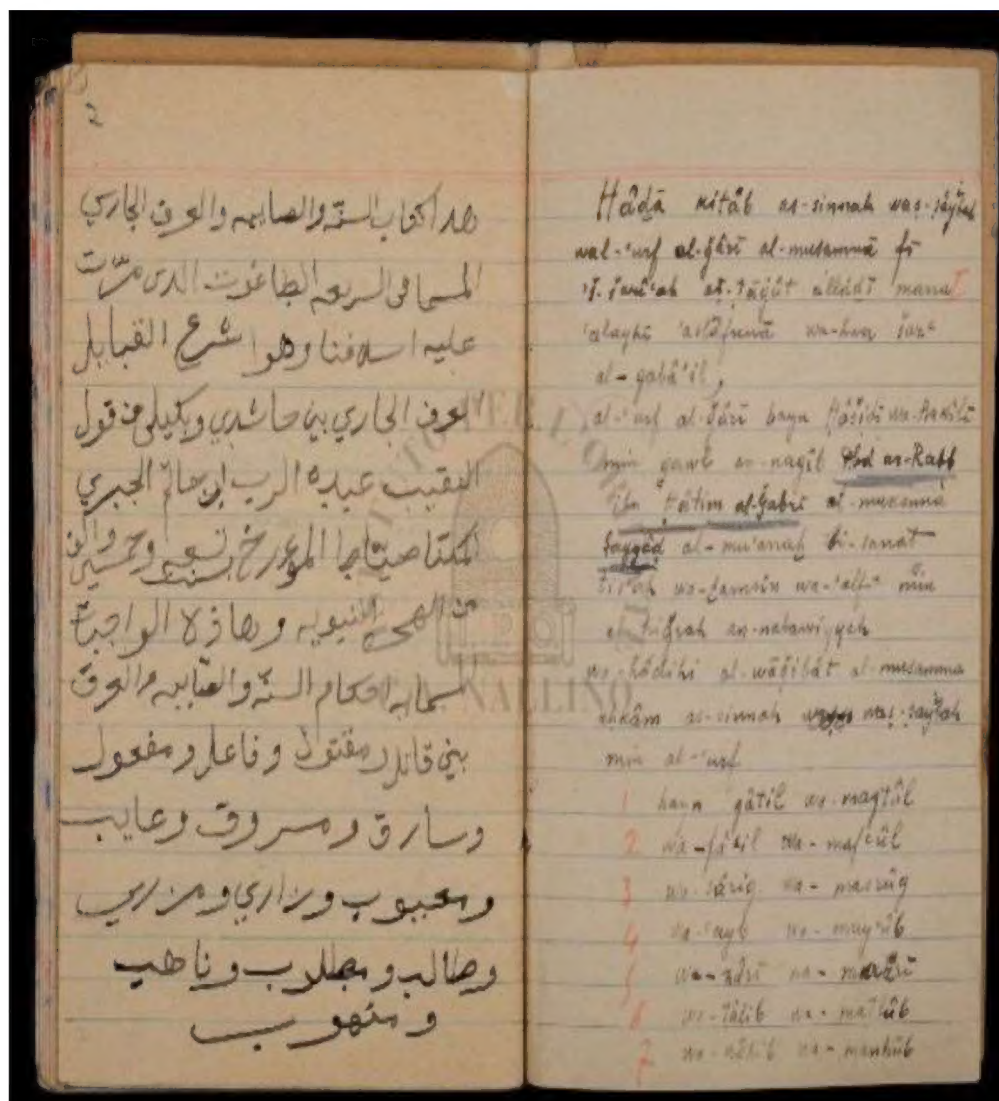 2
هدا كتاب السنّه والصايبه والعرف الجاري
المسما في السريعه الطاغوت الدي مرّت
عليه اسلافنا وهوا شرع القبايل
لعرف الجاري بين حاشدي وبكيلي من قول
النقيب عبده الرب ابن حاتم الجبري
المورخ بسنت تسعه وخمسين والف
من النبويه وهاذلا الواجبات
المسمابه احكام السنّه والصايبه والعرف
بين قاتل ومقتول وفاعل ومفعول
وسارق ومسروق وعايب
ومعيوب وزاري ومزري
وطالب ومطلوب وناهب
ومنهوب
Hâḏâ kitâb as-sinnah waṣ-ṣâybah
wal-ʿurf al-ǧârî al-musammâ fî
ʾš-šarîʿah aṭ-ṭâġût allâḏî marra
ʿalayhi ʾaslâfunâ wa-hua šarʿ
al-qabâʾil,
al-ʿurf al-ǧârî bayn Ḥâšidî wa-Bakîlî
min qawl an-naqîb ʿAbd ar-Rabb
ibn Ḥâtim al-Ǧabrî al-musammâ
Ṣayyâd al-muʾarraḫ bi-sanat
tisʿah wa-ḫamsîn wa-ʾalf min
al-hiǧrah an-nabawiyyah
wa-hâḏihi al-wâǧibât al-musamma
aḥkâm as-sinnah waṣ-ṣâybah
min al-ʿurf
1 bayn qâtil wa-maqtûl
2 wa-fâʿil wa-mafʿûl
3 wa-sâriq wa-masrûq
4 wa-ʿayb wa-mayʿûb
5 wa-zârî wa-mazrî
6 wa-ṭâlib wa-maṭlûb
7 wa-nâhib wa-manhûb